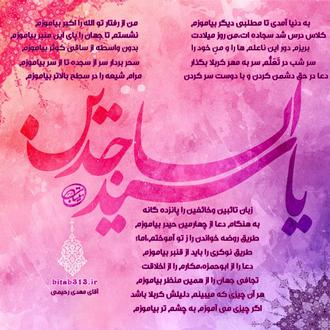 به دنیا آمدی تا مطلبی دیگر بیاموزم
من از رفتار تو الله را اکبر بیاموزم
کلاس درس شد سجاده ات،من روز میلادت
نشستم تا جهان را پای این منبر بیاموزم
بریزم دور این ناعلم ها را و من خود را
بدون واسطه از ساقی کوثر بیاموزم
سر شب در تَعَلُّم سر به مهر کربلا بگذار
سحر بردار سر از سجده تا از سر بیاموزم
دعا در حق دشمن کردن و با دوست سر کردن
مرام شیعه را در سطح بالاتر بیاموزم
یا سید الساجدین
زبان تائبین وخائفین را پانزده گانه
به هنگام دعا از چهارمین حیدر بیاموزم
طریق روضه خواندن را ز تو آموختم،اما؛
طریق نوکری را باید از قنبر بیاموزم
دعا را از ابوحمزه،مکارم را از اخلاقت
تجافی جهان را از همین منظر بیاموزم
هر آن چیزی که میبینم دلیلش کربلا باشد
اگر چیزی می آموزم به چشم تر بیاموزم
bitab313.ir
آقای مهدی رحیمی